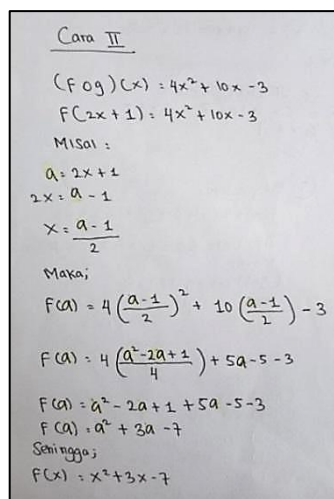 Cara II
(f o g)(x) = 4x² + 10x - 3
F(2x + 1) = 4x² + 10x - 3
Misal :
a = 2x + 1
2x = a - 1
x = (a - 1)/2
Maka;
F(a) = 4((a - 1)/2)² + 10((a - 1)/2) - 3
F(a) = 4((a² - 2a + 1)/4) + 5a - 5 - 3
F(a) = a² - 2a + 1 + 5a - 5 - 3
F(a) = a² + 3a - 7
Sehingga;
F(x) = x² + 3x - 7